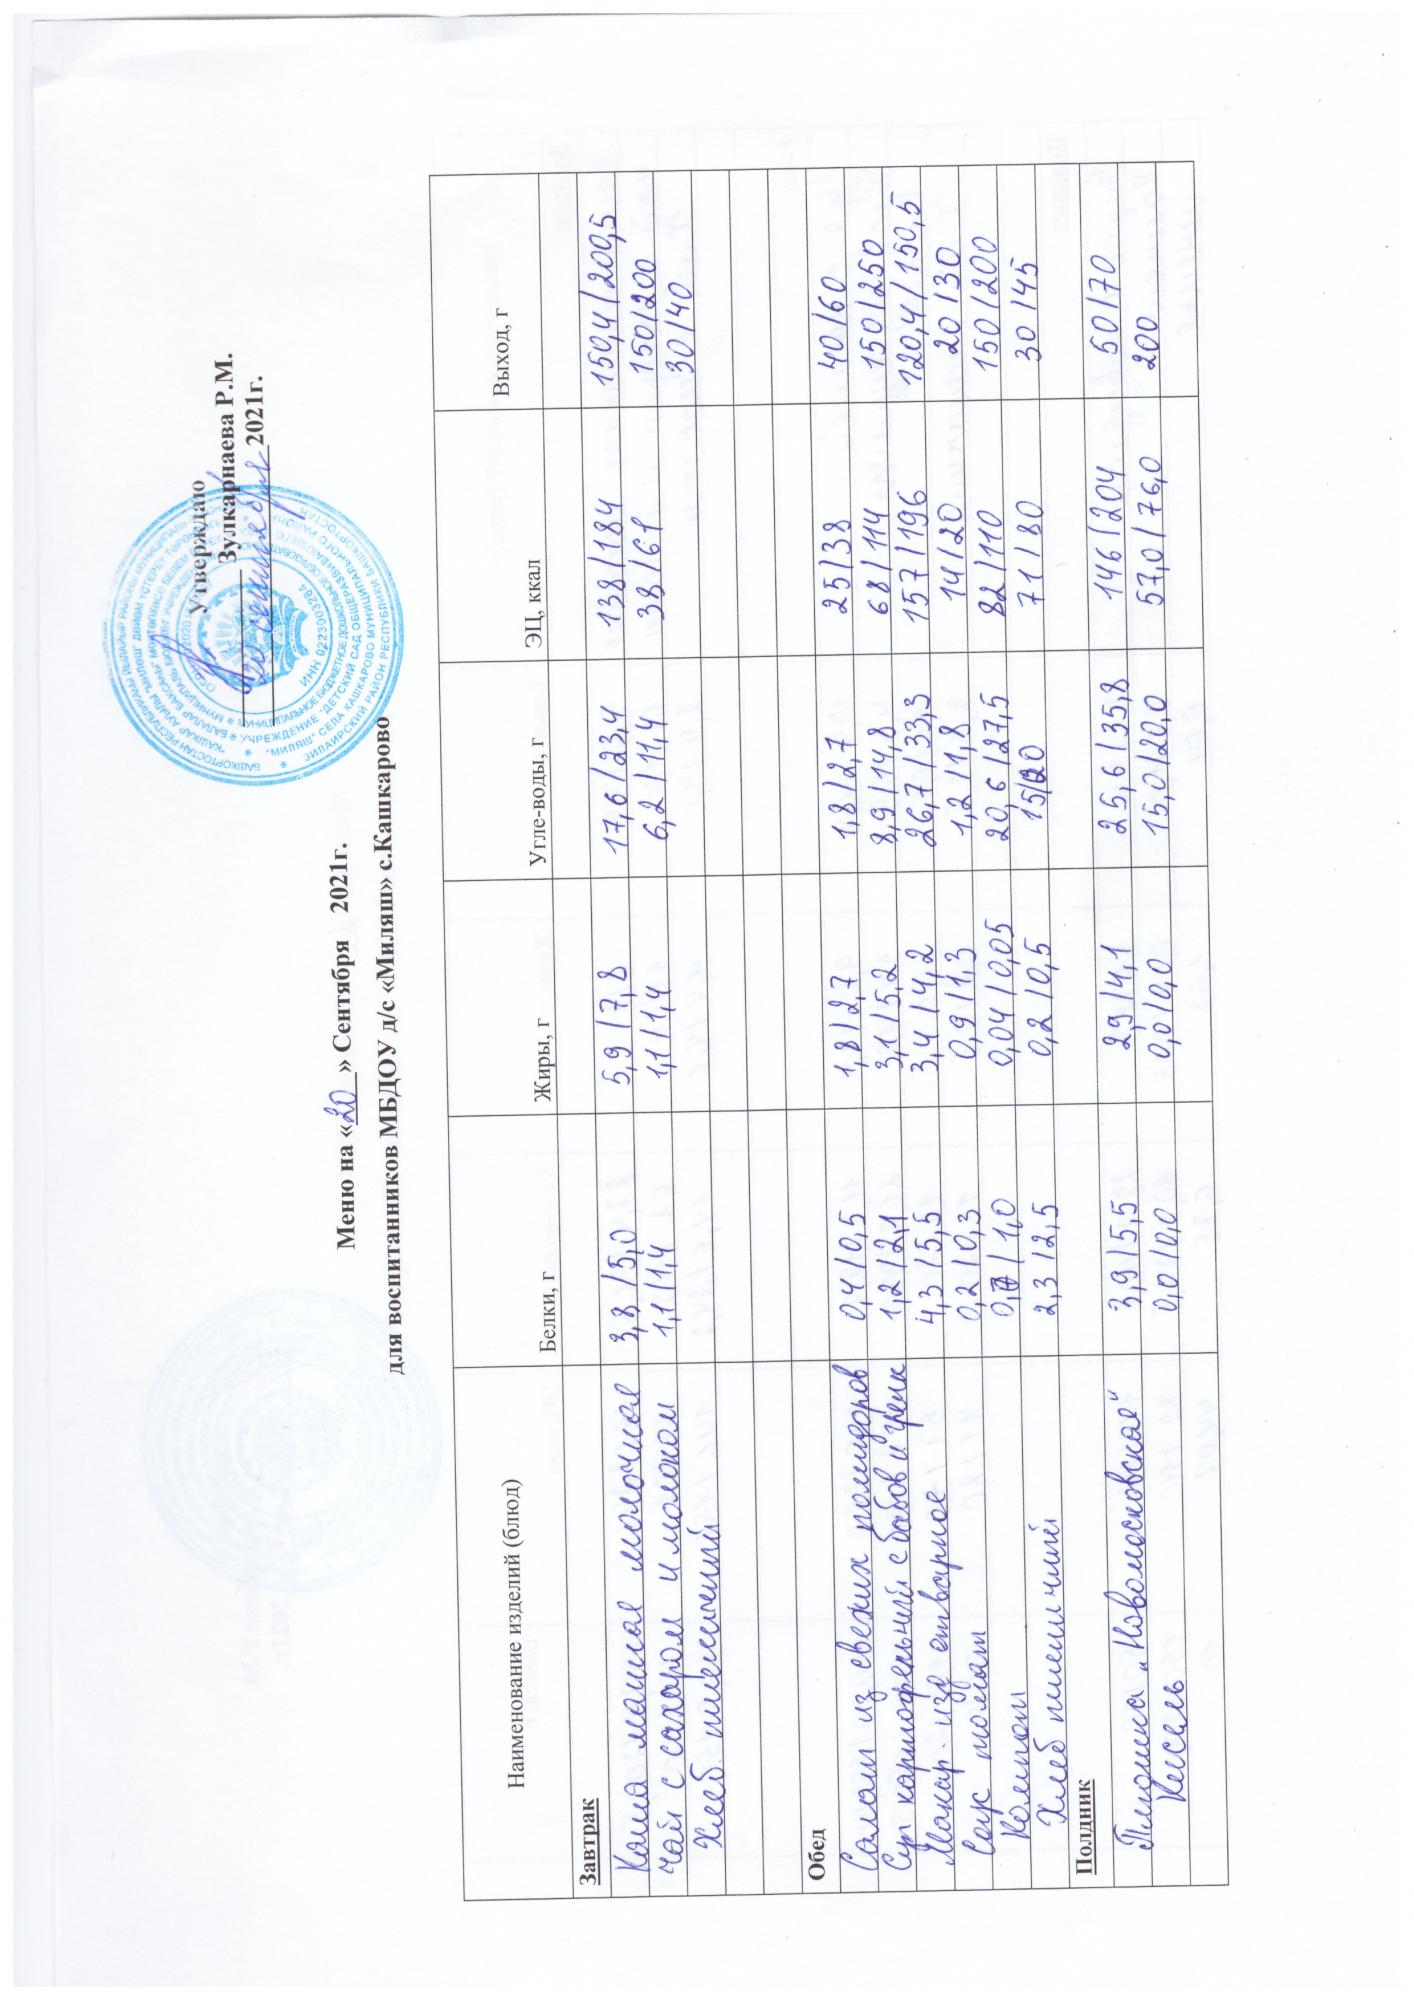 Утверждаю
Зулкарнаева Р.М.
20 сентября 2021г.
Меню на «20» Сентября 2021г.
для воспитанников МБДОУ д/с «Миляш» с.Кашкарово
Наименование изделий (блюд) Белки, г Жиры, г Угле-воды, г ЭЦ, ккал Выход, г
Завтрак
Каша манная молочная 3,8/5,0 5,9/7,8 17,6/23,4 138/184 150,4/200,5
Чай с сахаром и молоком 1,1/1,4 1,1/1,4 6,2/11,4 38/61 150/200
Хлеб пшеничный 30/40
Обед
Салат из свежих помидоров 0,4/0,5 1,8/2,7 1,8/2,7 25/38 40/60
Суп картофельный с бобов и грен 1,2/2,1 3,1/5,2 8,9/14,8 68/114 150/250
Макар. изд отварное 4,3/5,5 3,4/4,2 26,7/33,3 157/196 120,4/150,5
Соус томат 0,2/0,3 0,9/1,3 1,2/1,8 14/20 20/30
Компот 0,7/1,0 0,04/0,05 20,6/27,5 82/110 150/200
Хлеб пшеничный 2,3/2,5 0,2/0,5 15/20 71/80 30/45
Полдник
Плюшка „Новомосковская" 3,9/5,5 2,9/4,1 25,6/35,8 146/204 50/70
Кисель 0,0/0,0 0,0/0,0 15,0/20,0 57,0/76,0 200
ИНН 0223003264